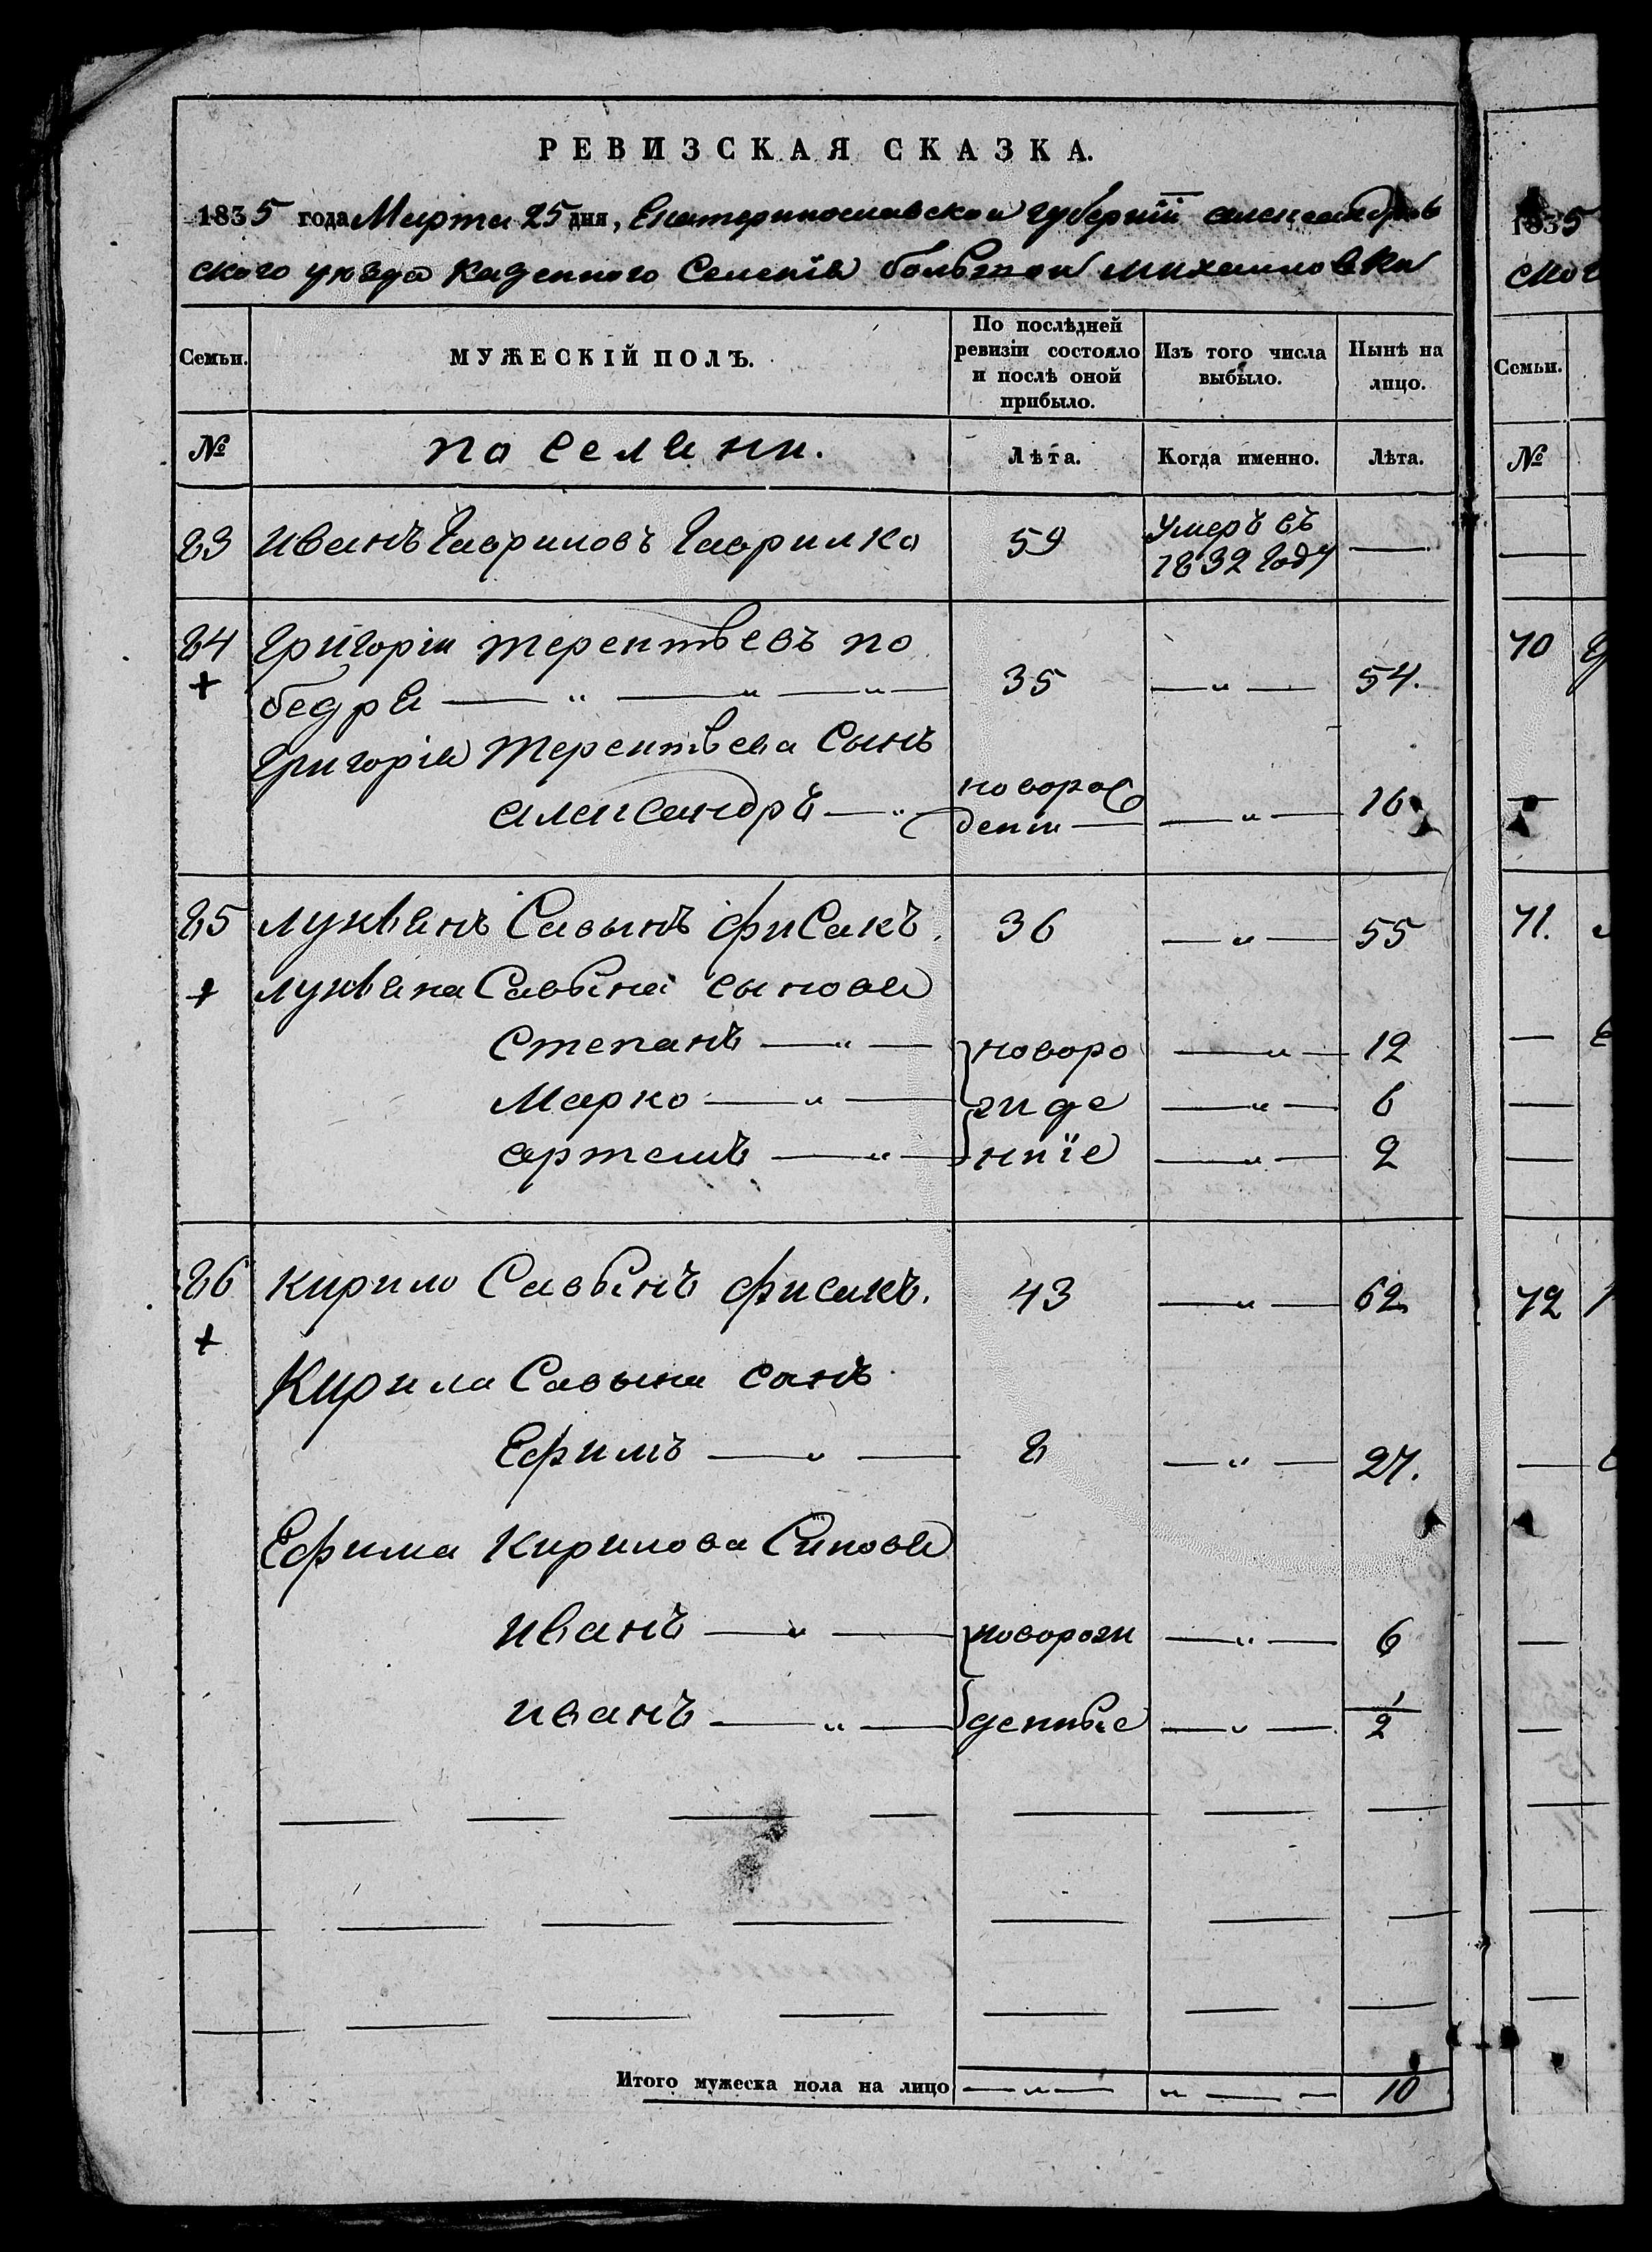 РЕВИЗСКАЯ СКАЗКА.
1835 года Марта 25 дня, Екатеринославской губерніи александров
ского уезда казенного Селенія большои михаиловки
Семьи. МУЖЕСКІЙ ПОЛЪ. По послѣдней ревизіи состояло и послѣ оной прибыло. Изъ того числа выбыло. Нынѣ на лицо.
№ поселяни. Лѣта. Когда именно. Лѣта.
83 иванъ Гавриловъ Гаврилко 59 Умеръ въ 1832 Году —
84 Григоріи терентьевъ по
бедря — „ — „ — „ — 35 — „ — 54.
Григорія терентьева Сынъ
александръ — „ — новорож
дени — — „ — 16
85 лукьянъ Савынъ фисакъ. 36 — „ — 55
лукьяна Савына сыновя
Степанъ — „ — новоро — „ — 12
Марко — „ — жде — „ — 6
артемъ — „ — ннiе — „ — 2
86 кирило Савынъ фисакъ. 43 — „ — 62
Кирила Савына сынъ
Ефимъ — „ — 8 — „ — 27.
Ефима кирилова Синовя
иванъ — „ — новорож — „ — 6
иванъ — „ — денные — „ — 1/2
Итого мужеска пола на лицо — „ — „ — — 10
1835
ског
Семьи.
№
70
71.
72